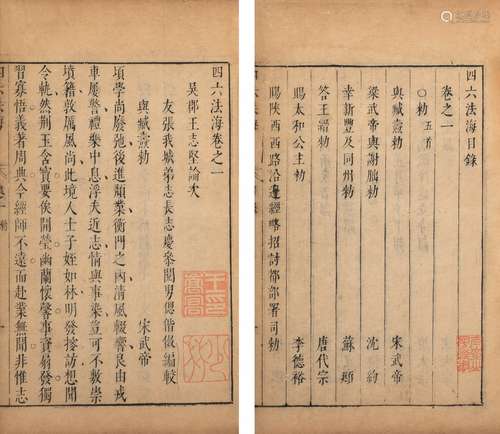 四六法海目錄
卷之一
○勅 五首
與臧燾勅 宋武帝
梁武帝與謝朏勅 沈約
幸新豐及同州勅 蘇頲
答王縉勅 唐代宗
賜太和公主勅 李德裕
賜陝西西路沿邊經略招討都部署司勅
四六法海卷之一
吳郡王志堅論次
友張我城 弟志長志慶參閱 男偲偕儆編較
與臧燾勅 宋武帝
頃學尚廢弛後進頹業衡門之內清風輟響良由戎
車屢警禮樂中息浮夫近志情與事染豈可不敷崇
墳籍敦厲風尚此境人士子姪如林明發搜訪想聞
令軌然荊玉含寶要俟開瑩幽蘭懷馨事資扇發獨
習寡悟義著周典今經師不遠而赴業無聞非惟志